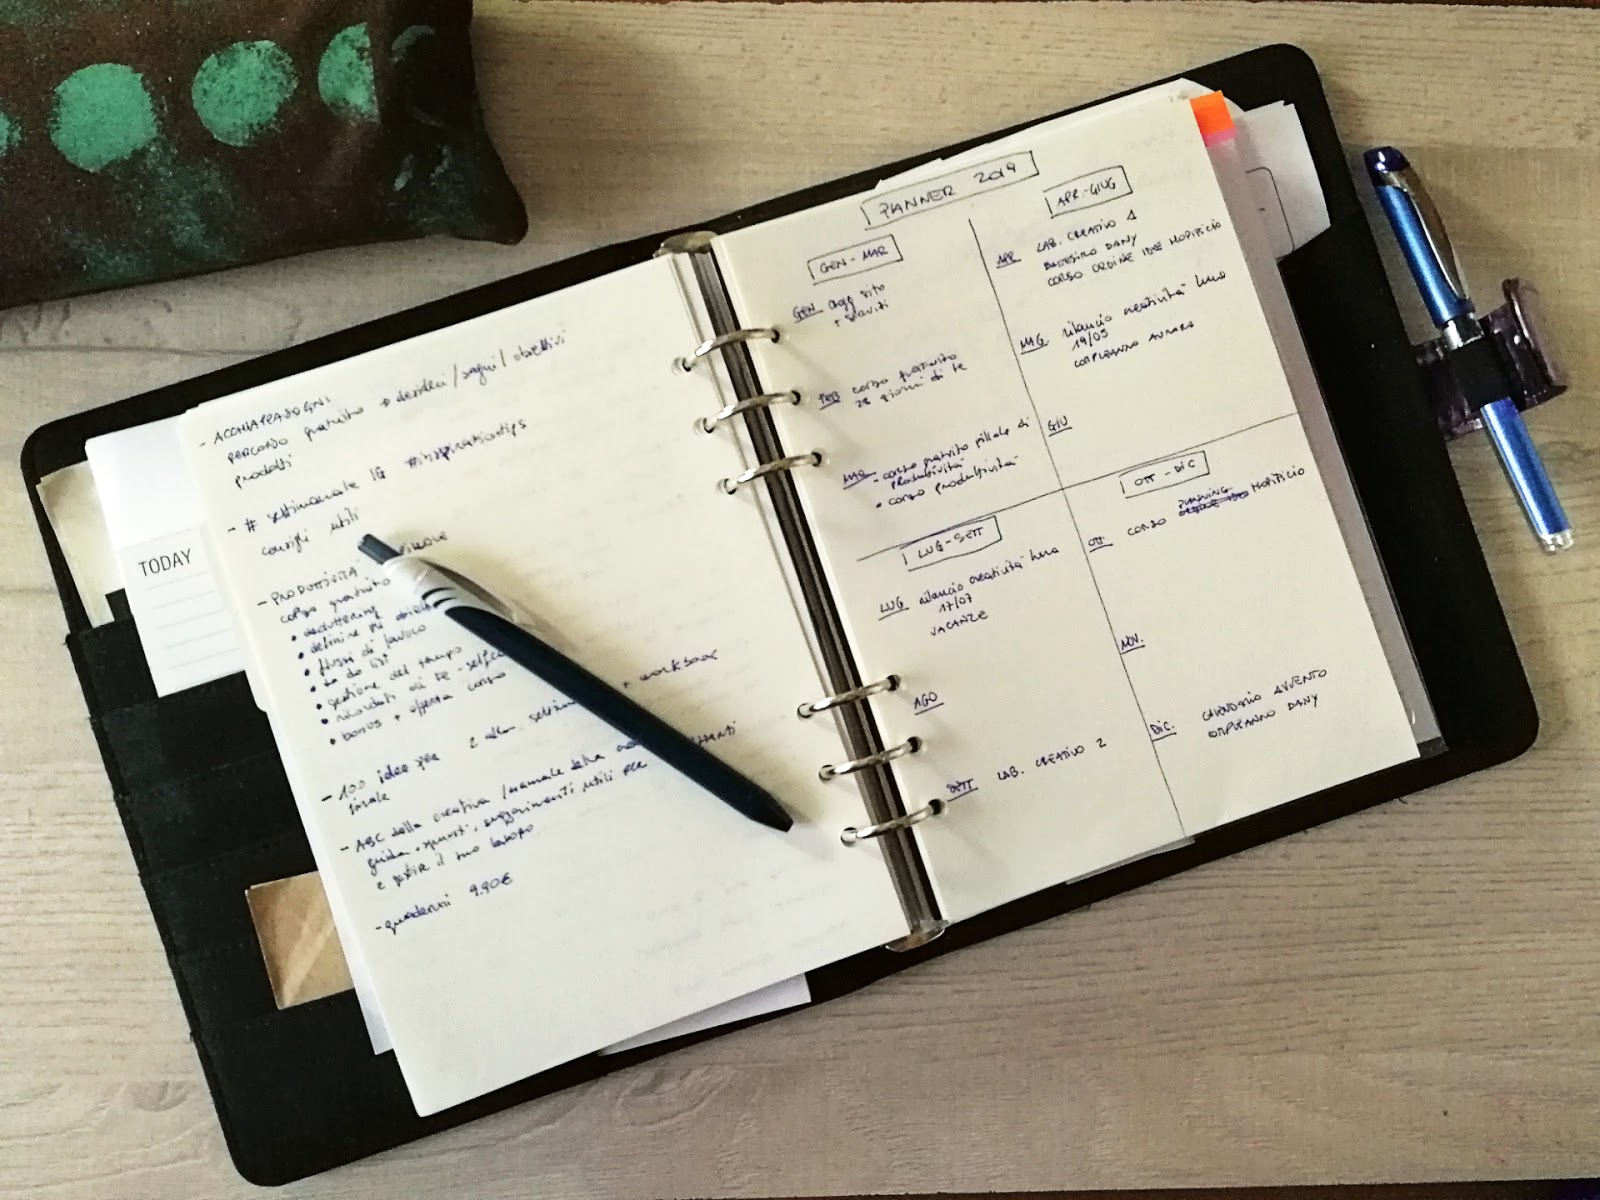 - ACCHIAPPASOGNI
PERCORSO gratuito → desideri / sogni / obiettivi
prodotti
- # settimanale IG #inspirationtips
consigli utili
TODAY
- PRODUTTIVITÀ
corso gratuito
• decluttering
• definire gli
• flussi di lavoro
• to do list
• gestione del tempo
• ricordati di te - selfcare
• bonus + offerta corso
- 100 idee per 2 alla + workbook
finale
- ABC della creativa / manuale della
guida, spunti, suggerimenti utili per
e gestire il tuo lavoro
- quaderni 9.90€
PLANNER 2019
GEN - MAR
GEN agg sito
+ servizi
FEB corso gratuito
28 giorni di te
MAR - corso gratuito pillole di
produttività
• corso produttività
APR - GIUG
APR LAB. CREATIVO 1
BATTESIMO DANY
CORSO ORDINE IDEE
MAG. rilancio creatività luna
19/05
COMPLEANNO AURORA
GIU
LUG - SETT
LUG rilancio creatività luna
17/07
VACANZE
AGO
SETT LAB. CREATIVO 2
OTT - DIC
OTT. CORSO PLANNING
NOV.
DIC. CALENDARIO AVVENTO
COMPLEANNO DANY